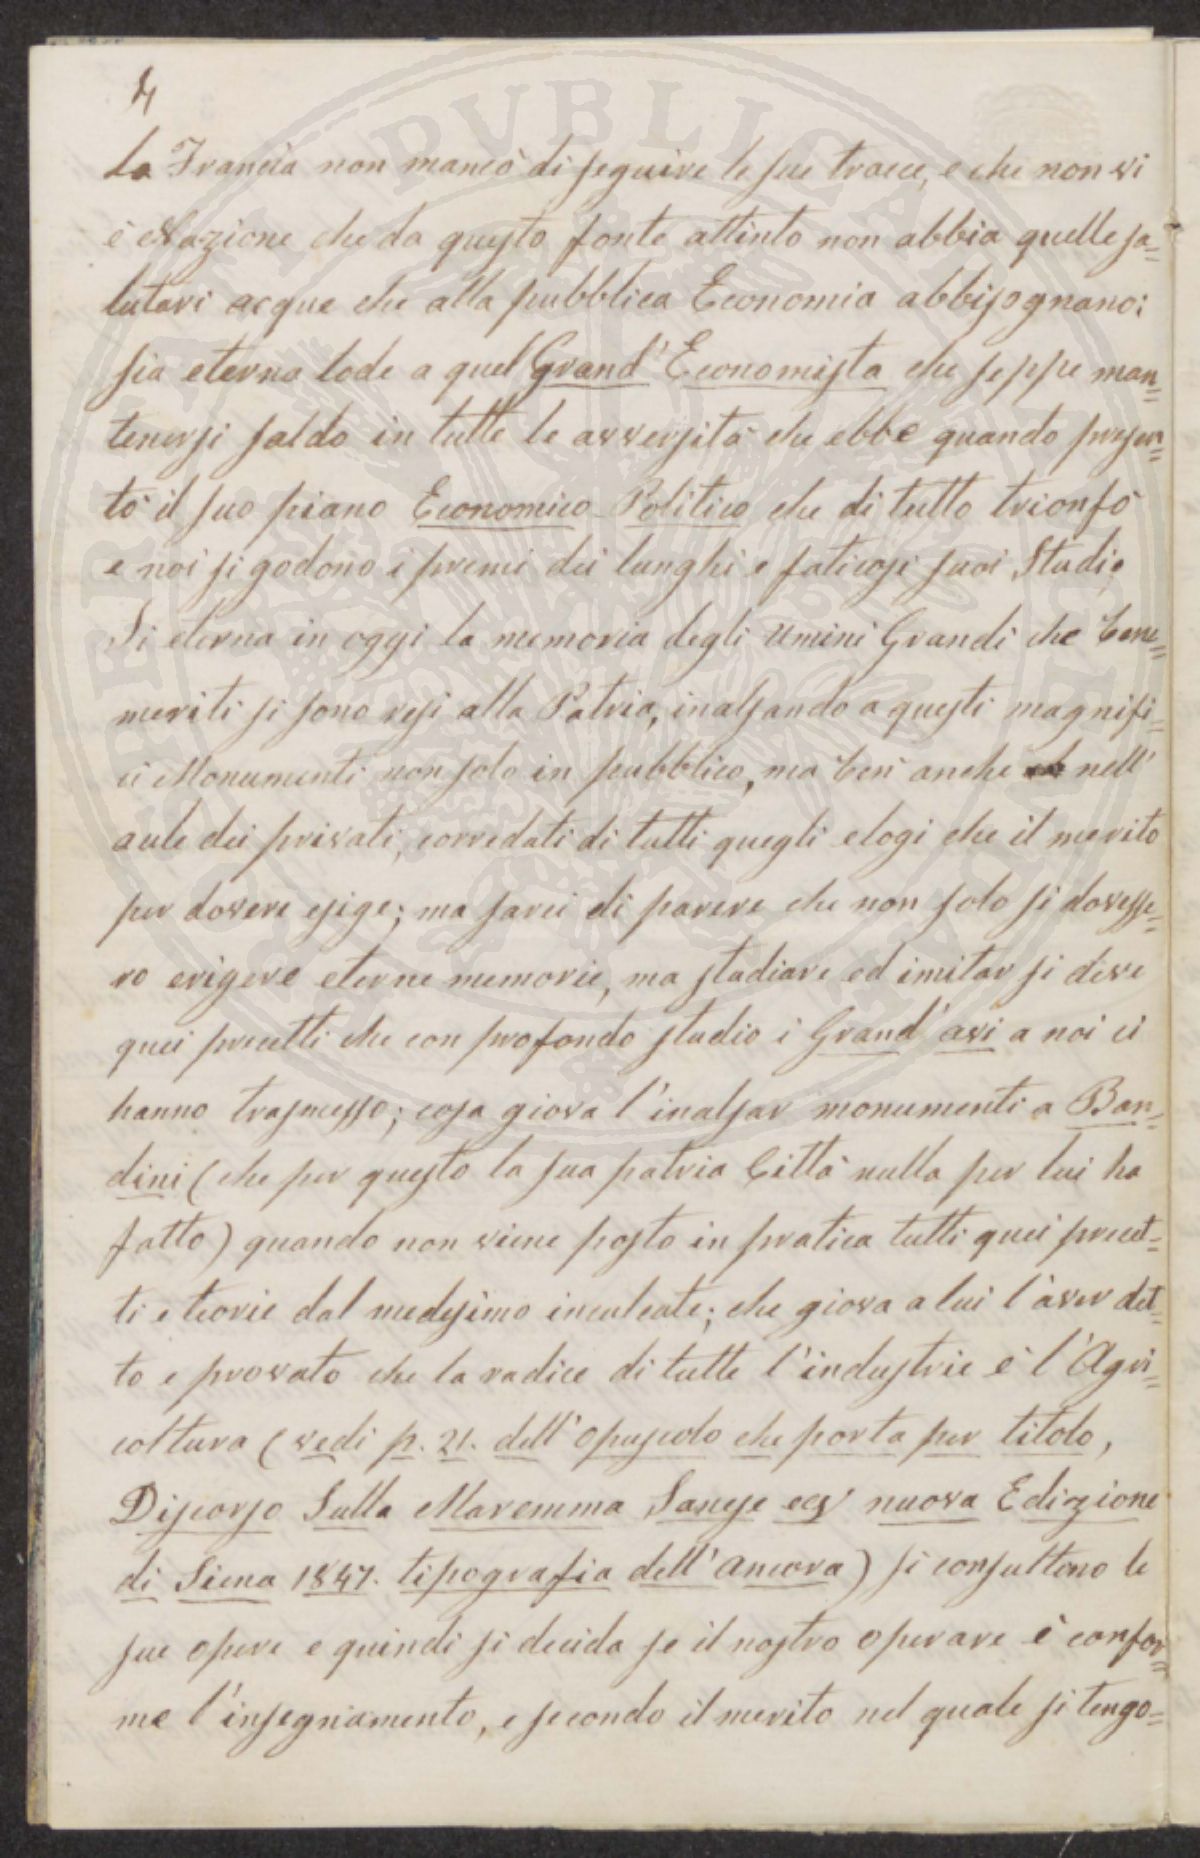 4
la Francia non mancò di seguire le sue tracce, e che non vi
è Nazione che da questo fonte attinto non abbia quelle sa=
lutari acque che alla pubblica Economia abbisognano:
sia eterna lode a quel Grand' Economista che seppe man=
tenersi saldo in tutte le avversità che ebbe quando presen=
tò il suo piano Economico-Politico che di tutto trionfò
e noi si godono i premi dei lunghi e faticosi suoi Studi.
Si eterna in oggi la memoria degli Umini Grandi che bene=
meriti si sono resi alla Patria, inalsando a questi magnifi=
ci Monumenti non solo in pubblico, ma ben anche nell'
aule dei privati, corredati di tutti quegli elogi che il merito
per dovere esige; ma sarei di parere che non solo si dovesse=
ro erigere eterne memorie, ma studiare ed imitar si deve
quei precetti che con profondo studio i Grand' avi a noi ci
hanno trasmesso; cosa giova l'inalsar monumenti a Ban=
dini (che per questo la sua patria Città nulla per lui ha
fatto) quando non viene posto in pratica tutti quei precet=
ti e teorie dal medesimo inculcate; che giova a lui l'aver det=
to e provato che la radice di tutte l'industrie è l'Agri=
coltura (vedi p. 21. dell'opuscolo che porta per titolo,
Discorso Sulla Maremma Sanese ecc nuova Edizione
di Siena 1847. tipografia dell'ancora) si consultono le
sue opere e quindi si decida se il nostro operare è confor=
me l'insegniamento, e secondo il merito nel quale si tengo=
PUBLICA